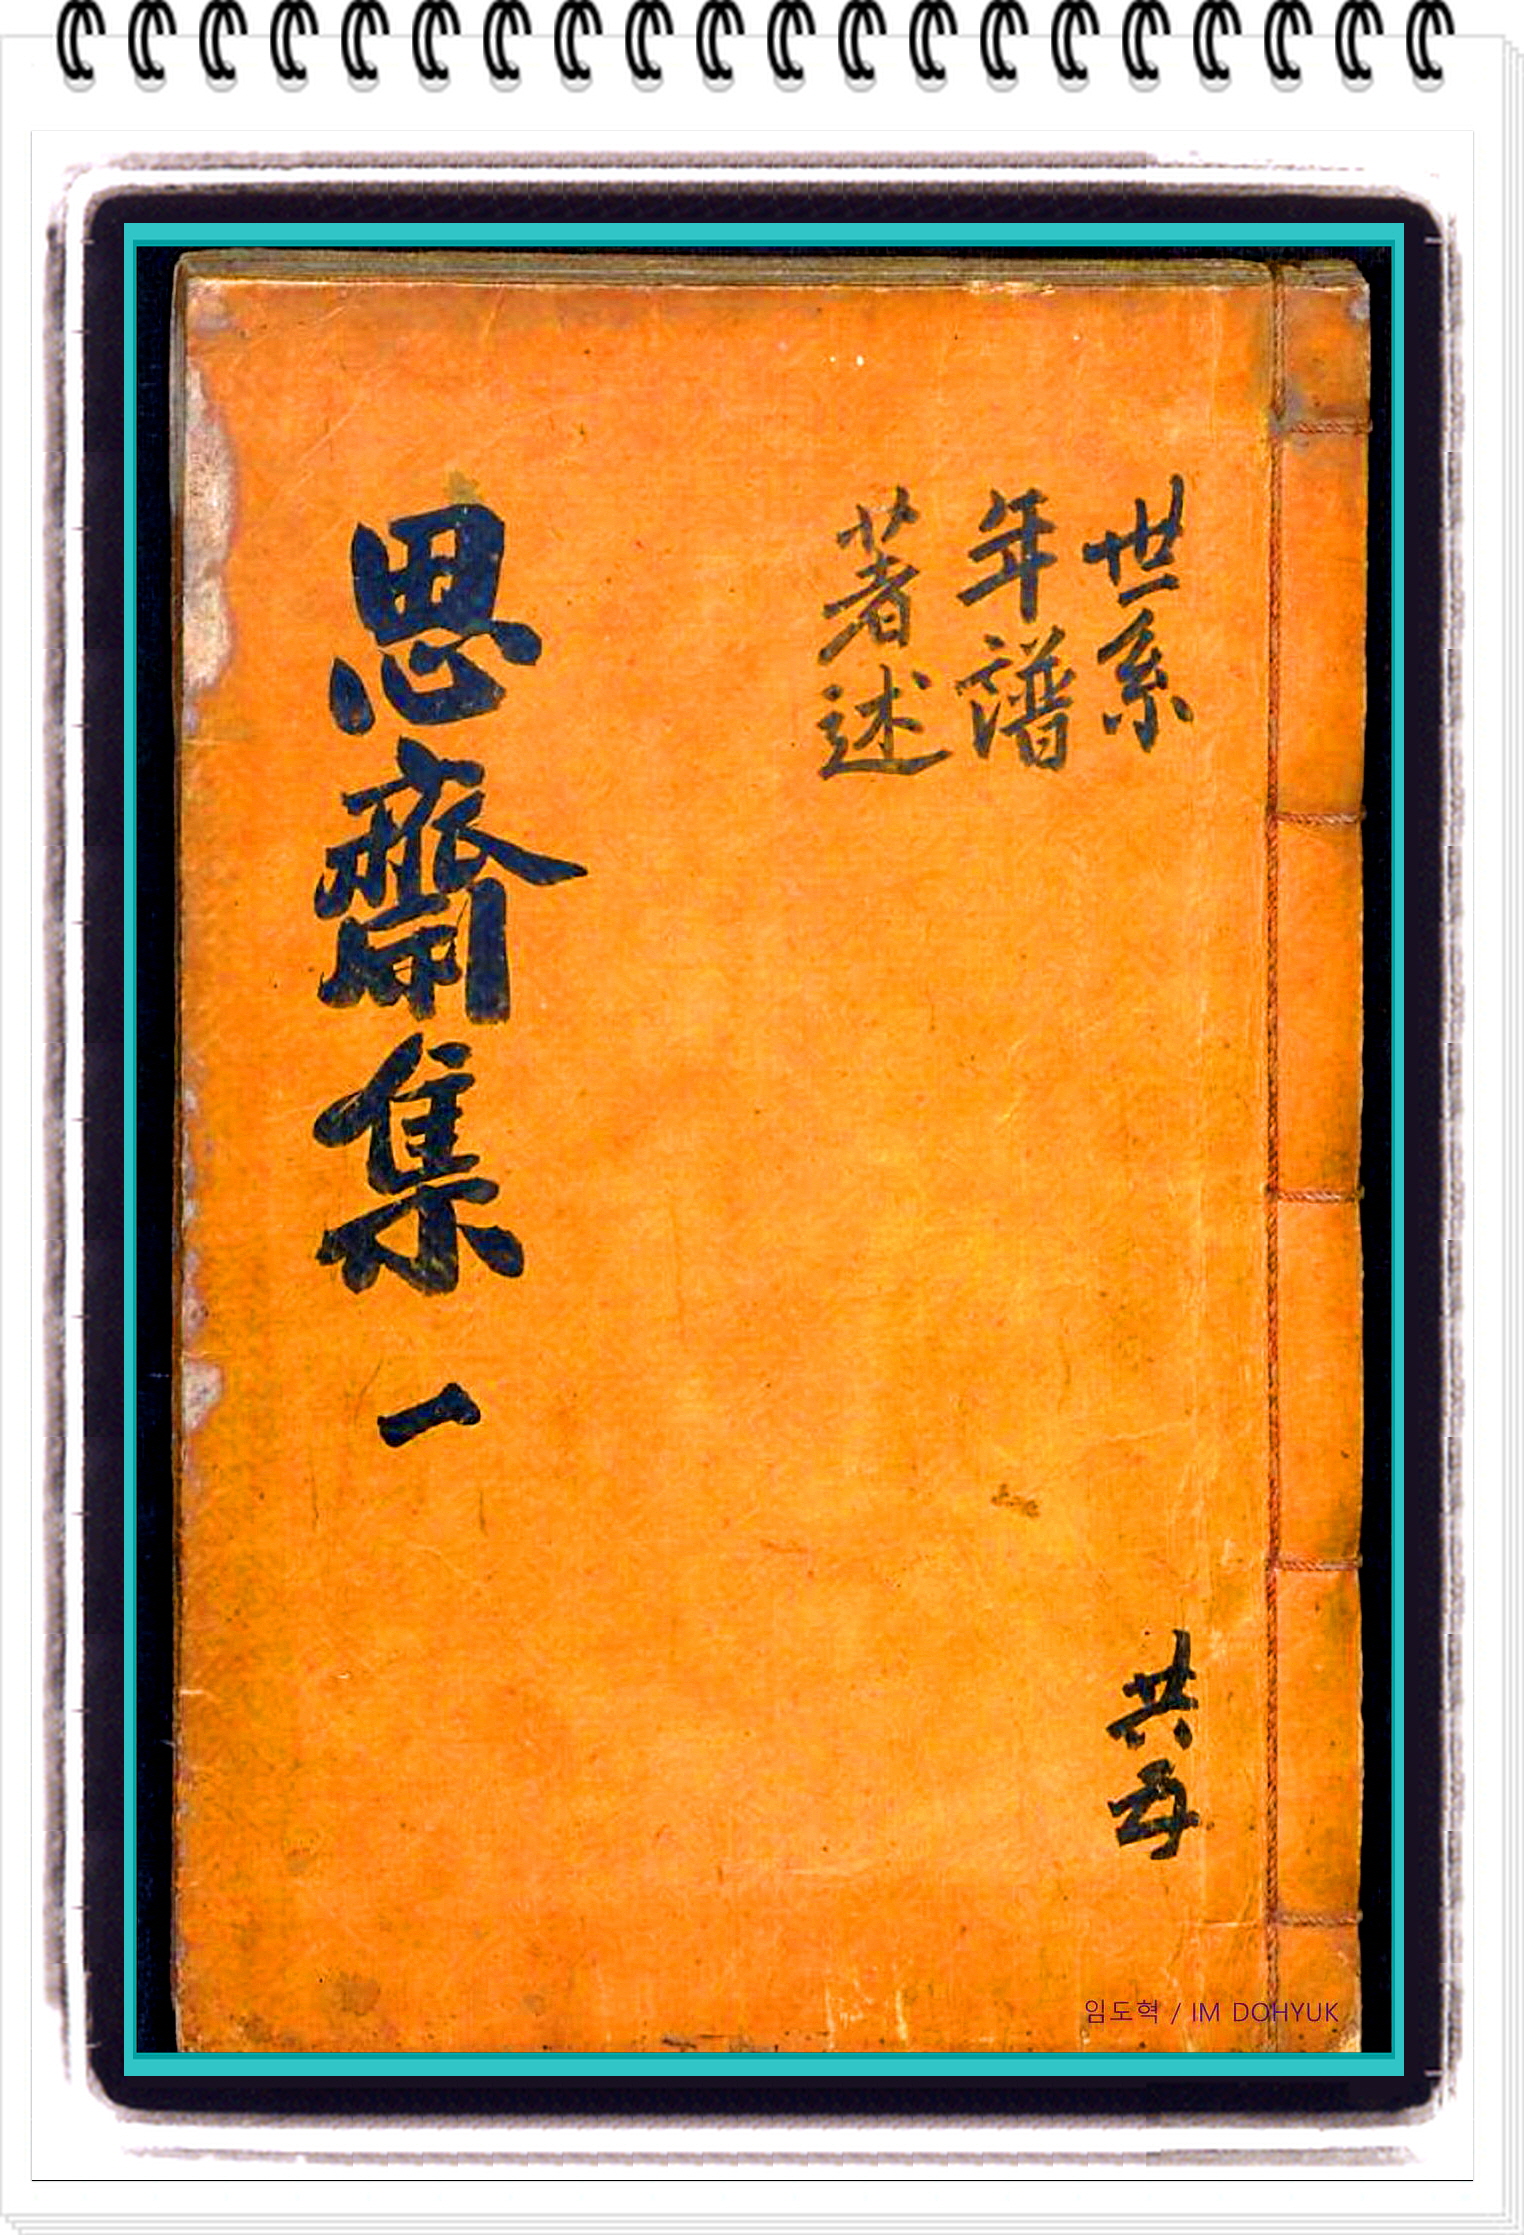 世系
年譜
著述
思齋集 一
共五
임도혁 / IM DOHYUK